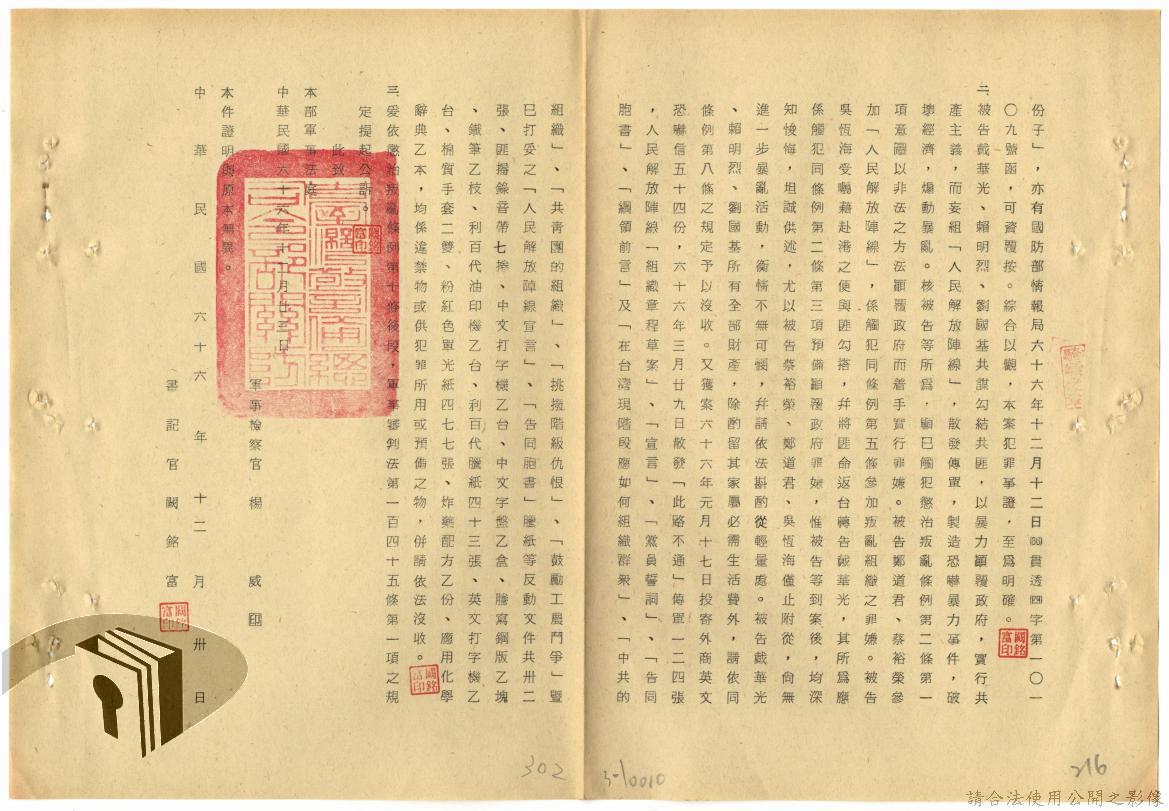 份子」，亦有國防部情報局六十六年十二月十二日㈣貫透㈣字第一〇一
〇九號函，可資覆按。綜合以觀，本案犯罪事證，至爲明確。
二、被告戴華光、賴明烈、劉國基共謀勾結共匪，以暴力顚覆政府，實行共
產主義，而妄組「人民解放陣線」，散發傳單，製造恐嚇暴力事件，破
壞經濟，煽動暴亂。核被告等所爲，顯已觸犯懲治叛亂條例第二條第一
項意圖以非法之方法顚覆政府而着手實行罪嫌。被告鄭道君、蔡裕榮參
加「人民解放陣線」，係觸犯同條例第五條參加叛亂組織之罪嫌。被告
吳恆海受囑藉赴港之便與匪勾搭，幷將匪命返台轉告戴華光，其所爲應
係觸犯同條例第二條第三項預備顚覆政府罪嫌，惟被告等到案後，均深
知悛悔，坦誠供述，尤以被告蔡裕榮、鄭道君、吳恆海僅止附從，尙無
進一步暴亂活動，衡情不無可憫，幷請依法斟酌從輕量處。被告戴華光
、賴明烈、劉國基所有全部財產，除酌留其家屬必需生活費外，請依同
條例第八條之規定予以沒收。又獲案六十六年元月十七日投寄外商英文
恐嚇信五十四份，六十六年三月廿九日散發「此路不通」傳單一二四張
，人民解放陣線「組織章程草案」、「宣言」、「黨員誓詞」、「告同
胞書」、「綱領前言」及「在台灣現階段應如何組織群衆」、「中共的
組織」、「共青團的組織」、「挑撥階級仇恨」、「鼓勵工農鬥爭」暨
已打妥之「人民解放陣線宣言」、「告同胞書」臘紙等反動文件共卅二
張、匪播錄音帶七捲、中文打字機乙台、中文字盤乙盒、謄寫鋼版乙塊
、鐵筆乙枝、利百代油印機乙台、利百代臘紙四十三張、英文打字機乙
台、棉質手套二雙、粉紅色單光紙四七七張、炸藥配方乙份、應用化學
辭典乙本，均係違禁物或供犯罪所用或預備之物，併請依法沒收。
三、爰依懲治叛亂條例第十條後段，軍事審判法第一百四十五條第一項之規
定提起公訴。
此致
本部軍事法庭
中華民國六十六年十二月廿三日
軍事檢察官 楊 威 印
本件證明與原本無異。
中華民國六十六年十二月卅日
書記官 闞銘富
闞銘富印
302
3-10010
216
請合法使用公開之影像